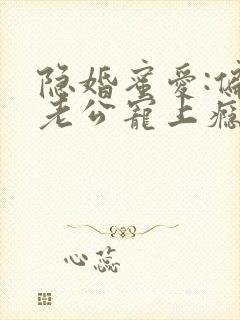 隐婚蜜爱:偏
老公宠上瘾
心蕊